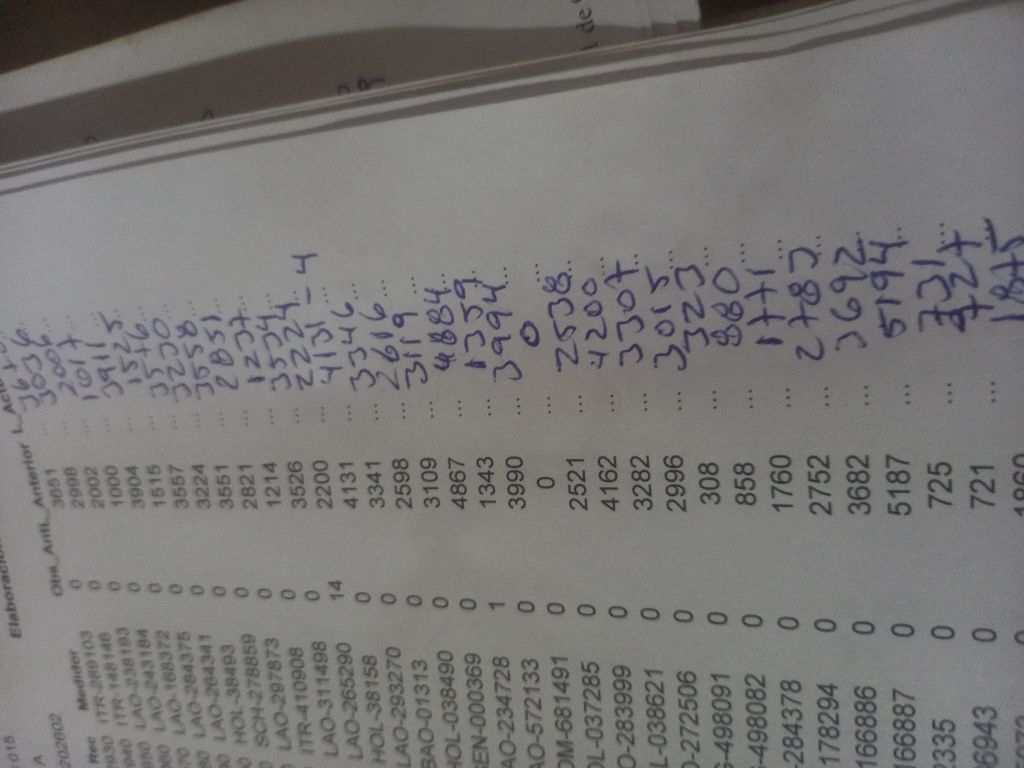 015 Elaboración
A
202802
Rec Medidor Obs_Anti_ Anterior
930 ITR-289103 0 3651
940 ITR-148146 0 2998 ... 3036 ...
LAO-238193 0 2002 ... 2006 ...
LAO-243184 0 1000 ... 1017 ...
LAO-168372 0 3904 ... 3911 ...
LAO-284375 0 1515 ... 1525 ...
LAO-264341 0 3557 ... 3576 ...
HOL-38493 0 3224 ... 3230 ...
SCH-278859 0 3551 ... 3558 ...
LAO-297873 0 2821 ... 2851 ...
ITR-410908 0 1214 ... 1237 ...
LAO-311498 0 3526 ... 3534 ...
LAO-265290 0 2200 ... 2224 ...
HOL-38158 14 4131 ... 4131-4
LAO-293270 0 3341 ... 3346 ...
BAO-01313 0 2598 ... 2616 ...
HOL-038490 0 3109 ... 3119 ...
SEN-000369 0 4867 ... 4884 ...
AO-234728 0 1343 ... 1359 ...
AO-572133 1 3990 ... 3994 ...
DM-681491 0 0 ... 0
OL-037285 0 2521 ... 2538 ...
O-283999 0 4162 ... 4200 ...
L-038621 0 3282 ... 3307 ...
0-272506 0 2996 ... 3015 ...
-498091 0 308 ... 323 ...
-498082 0 858 ... 880 ...
-284378 0 1760 ... 1771 ...
178294 0 2752 ... 2783 ...
166886 0 3682 ... 3692 ...
166887 0 5187 ... 5194 ...
2335 0 725 ... 731 ...
6943 0 721 ... 727 ...
0 1860 1875